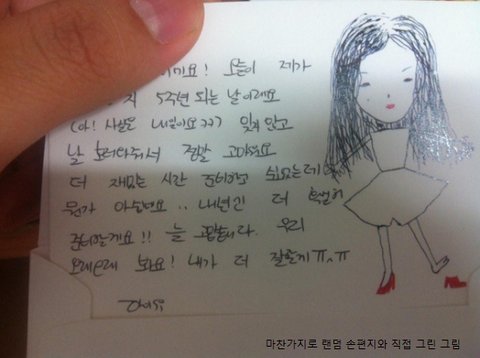 이끼요! 오늘이 제가
지 5주년 되는 날이래요
(아! 사실은 내일이요ㅋㅋㅋ) 잊지 않고
날 보러와줘서 정말 고마워요
더 재밌는 시간 준비하고 싶었는데
뭔가 아쉽네요.. 내년엔 더
준비할게요!! 늘 고맙습니다. 우리
오래오래 봐요! 내가 더 잘할게 ㅠㅅㅠ
마찬가지로 랜덤 손편지와 직접 그린 그림